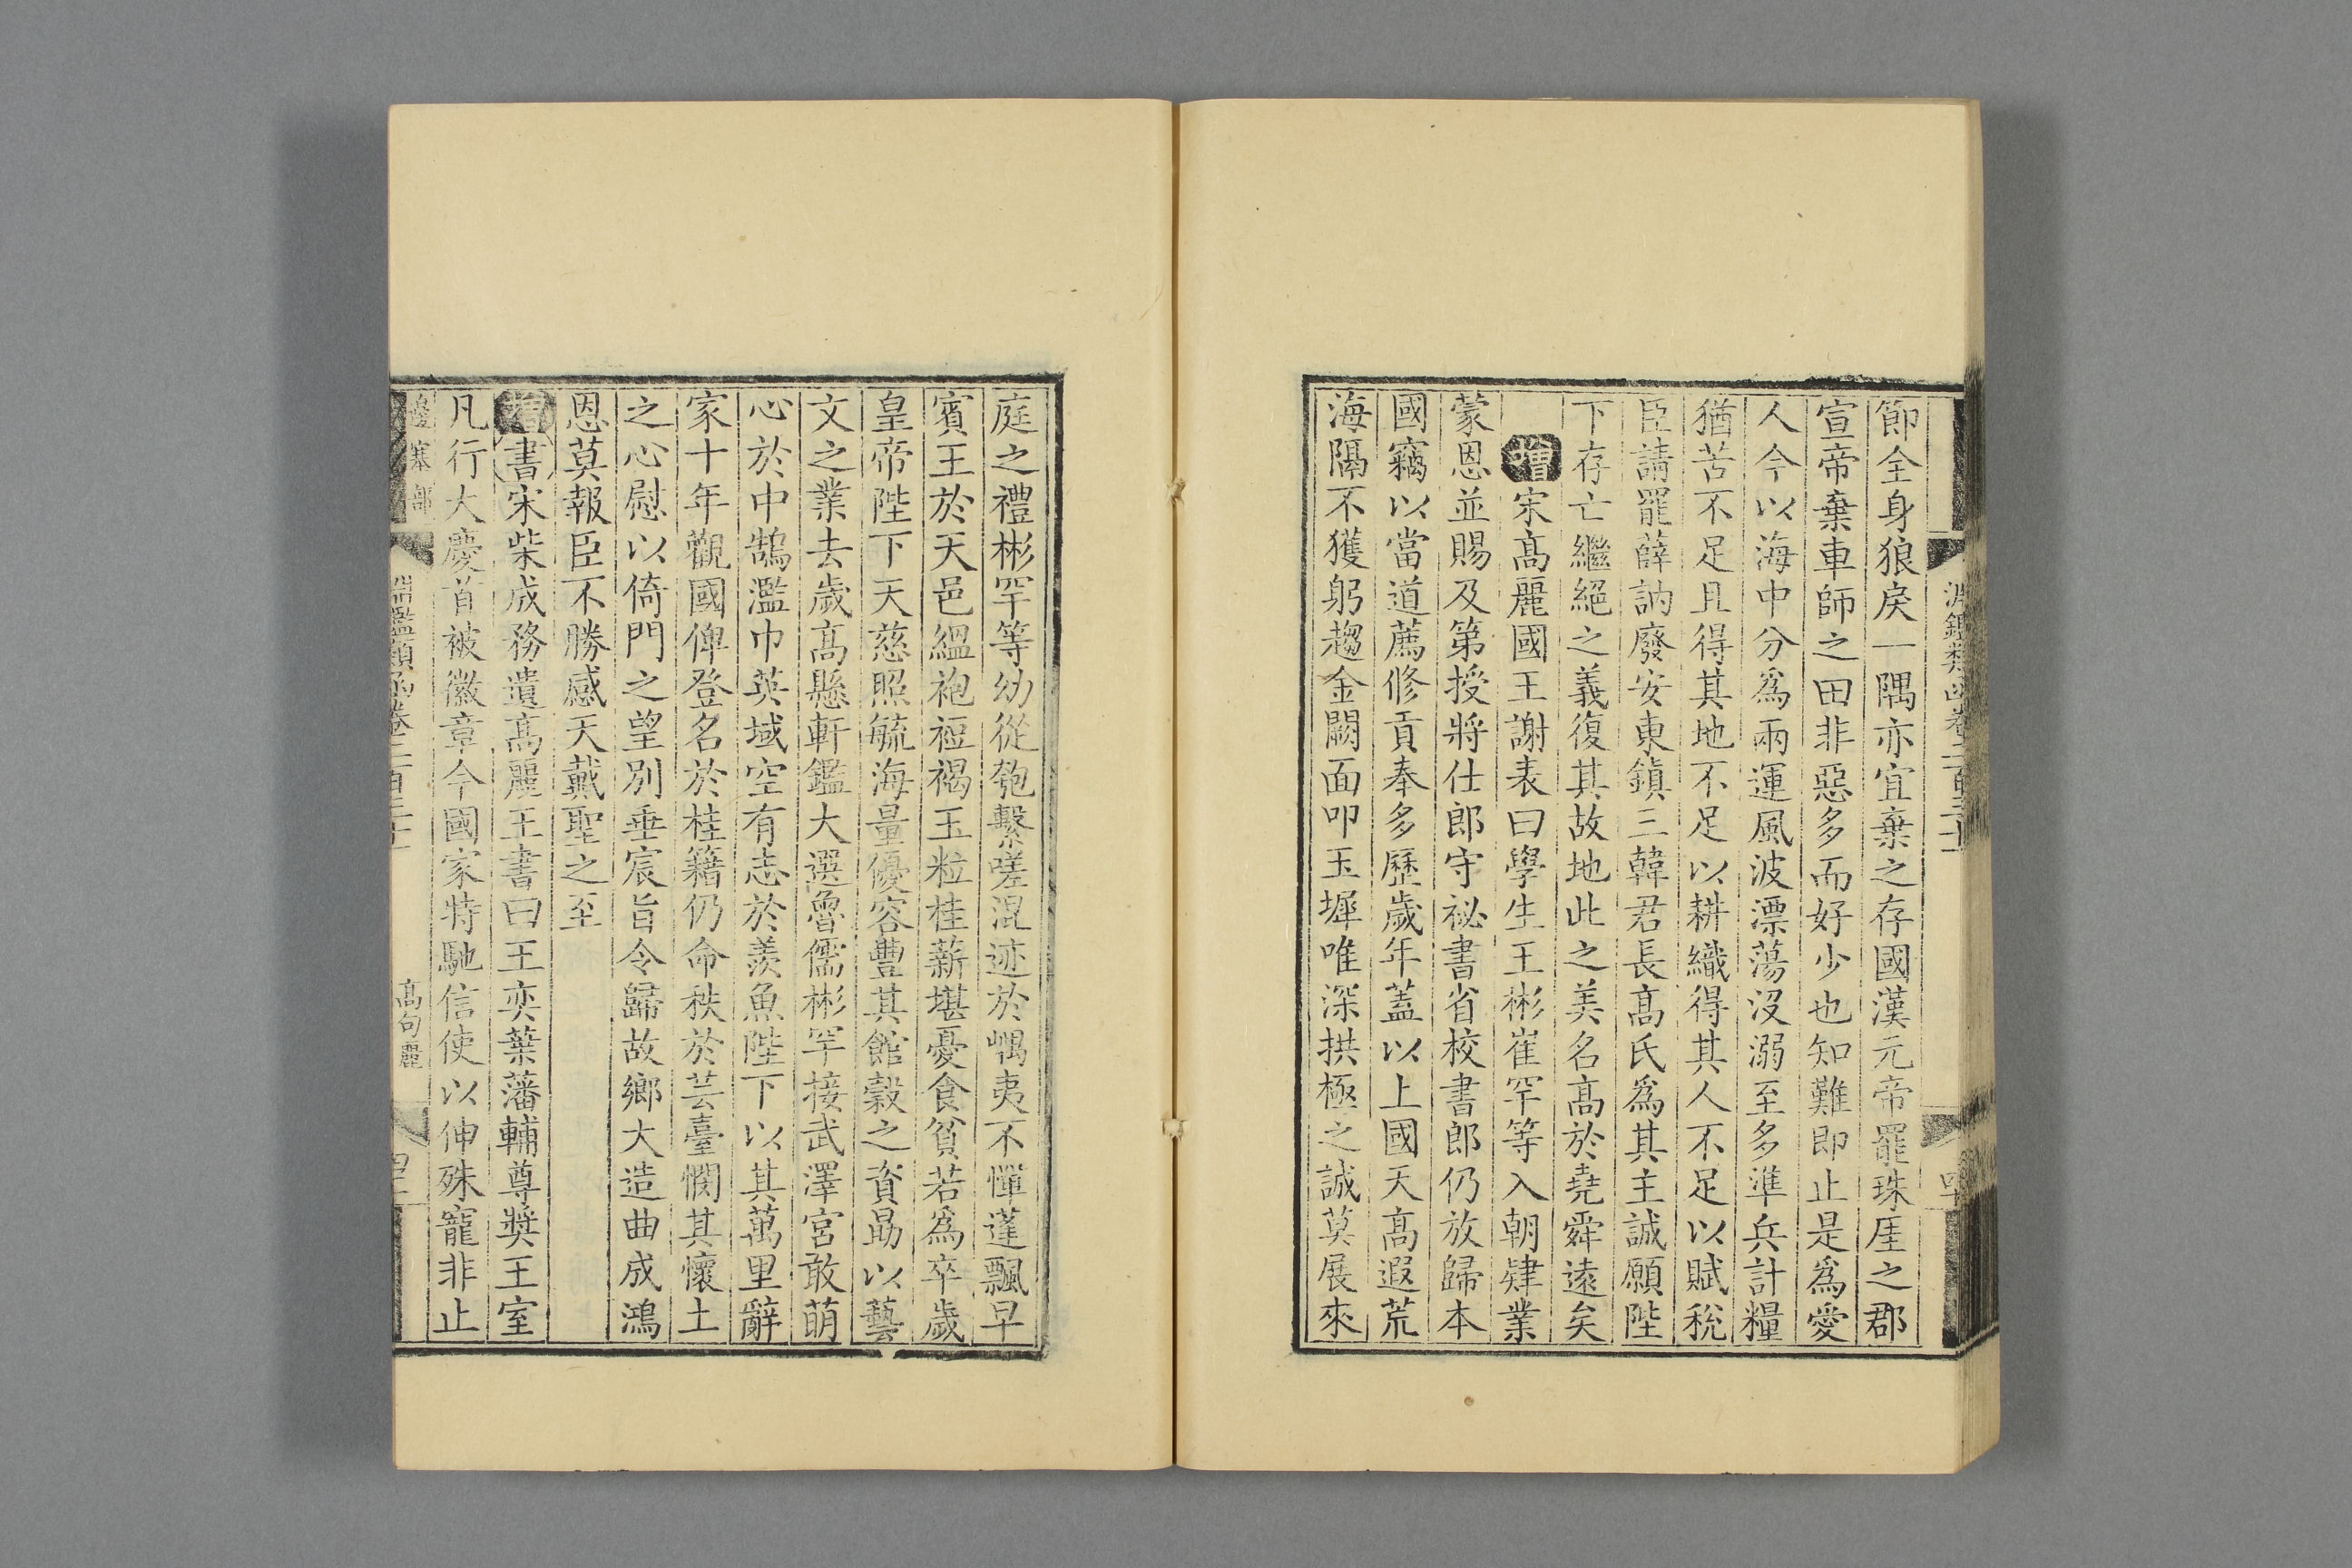 節全身狼戾一隅亦宜棄之存國漢元帝罷珠厓之郡
宣帝棄車師之田非惡多而好少也知難即止是爲愛
人今以海中分爲兩運風波漂蕩沒溺至多準兵計糧
猶苦不足且得其地不足以耕織得其人不足以賦稅
臣請罷薛訥廢安東鎮三韓君長高氏爲其主誠願陛
下存亡繼絕之義復其故地此之美名高於堯舜遠矣
增宋高麗國王謝表曰學生王彬崔罕等入朝肄業
蒙恩並賜及第授將仕郎守祕書省校書郎仍放歸本
國竊以當道薦修貢奉多歷歲年蓋以上國天高遐荒
海隔不獲躬趨金闕面叩玉墀唯深拱極之誠莫展來
庭之禮彬罕等幼從匏繫嗟混迹於嵎夷不憚蓬飄早
賓王於天邑縕袍短褐玉粒桂薪堪憂食貧若爲卒歲
皇帝陛下天慈照毓海量優容豐其館穀之資勗以藝
文之業去歲高懸軒鑑大選魯儒彬罕接武澤宮敢萌
心於中鵠濫巾英域空有志於羨魚陛下以其萬里辭
家十年觀國俾登名於桂籍仍命秩於芸臺憫其懷土
之心慰以倚門之望別垂宸旨令歸故鄉大造曲成鴻
恩莫報臣不勝感天戴聖之至
增書宋柴成務遺高麗王書曰王奕葉藩輔尊獎王室
凡行大慶首被徽章今國家特馳信使以伸殊寵非止
邊塞部
淵鑑類函卷二百三十
高句麗